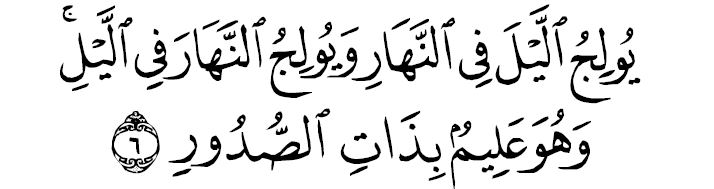 يُولِجُ ٱلَّيْلَ فِى ٱلنَّهَارِ وَيُولِجُ ٱلنَّهَارَ فِى ٱلَّيْلِ ۚ
وَهُوَ عَلِيمٌۢ بِذَاتِ ٱلصُّدُورِ ٦